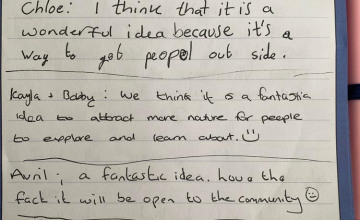 Chloe: I think that it is a
wonderful idea because it's a
way to get peopol out side.
Kayla + Bobby: we think it is a fantastic
idea to attract more nature for people
to explore and learn about. ☺
Avril: a fantastic idea. the
fact it will be open to the community ☺